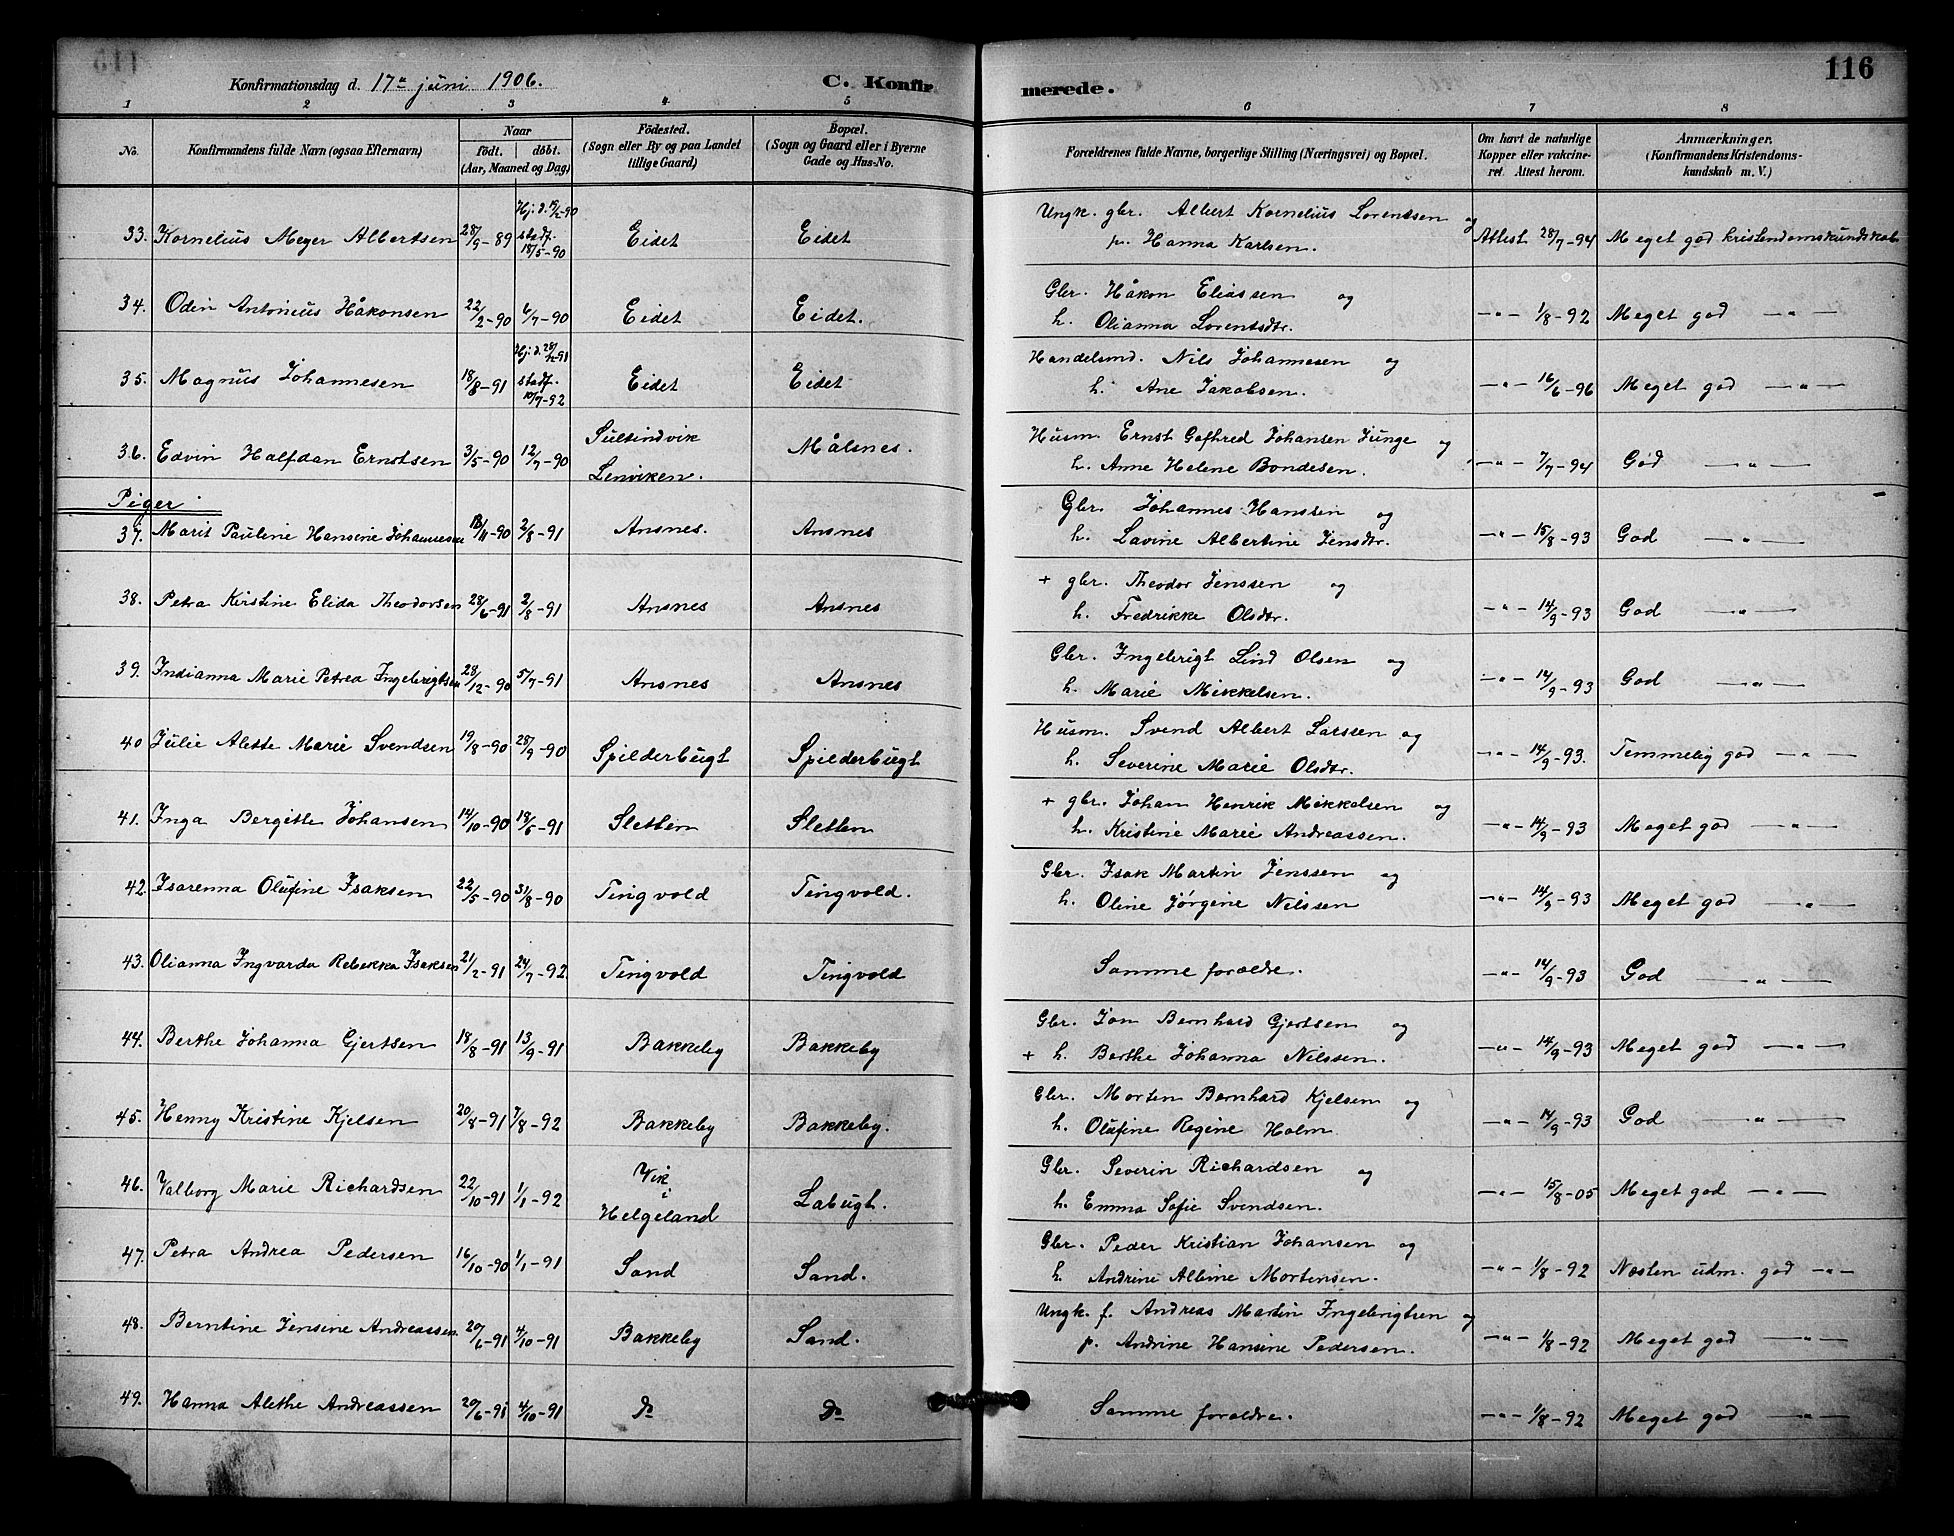 116
Konfirmationsdag d. 17de juni 1906. C. Konfirmerede.
1 2 3 4 5 6 7 8
No. Konfirmandens fulde Navn (ogsaa Efternavn) Naar födt. döbt. (Aar, Maaned og Dag) Födested. (Sogn eller By og paa Landet tillige Gaard) Bopæl. (Sogn og Gaard eller i Byerne Gade og Hus-No. Forældrenes fulde Navne, borgerlige Stilling (Næringsvei) og Bopæl. Om havt de naturlige Kopper eller vakcineret. Attest herom. Anmærkninger. (Konfirmandens Kristendomskundskab m. V.)
33. Kornelius Meyer Albertsen 28/9-89 Hj. d. 19/2-90 stadf. 18/5-90 Eidet Eidet Ungk. gbr. Albert Kornelius Lorentsen og p. Hanna Karlsen. Attest 28/7-94 Meget god kristendomskundskab
34. Odin Antonius Håkonsen 22/2-90 6/7-90 Eidet Eidet. Gbr. Håkon Eliassen og h. Olianna Lorentsdtr. -"- 1/8-92 Meget god -"-
35. Magnus Johannesen 18/8-91 Hj. d. 28/12-91 stadf. 10/7-92 Eidet Eidet Handelsmd. Nils Johannesen og h. Ane Jakobsen. -"- 16/6-96 Meget god -"-
36. Edvin Halfdan Ernstsen 3/5-90 12/7-90 Sultindvik Lenviken. Målsnes. Husm. Ernst Gofhred Johansen Junge og h. Anne Helene Bondesen. -"- 7/7-94 God -"-
Piger
37. Marit Pauline Hansine Johannesen 13/11-90 2/8-91 Ansnes. Ansnes Gbr. Johannes Hanssen og h. Lavine Albertine Jensdtr. -"- 15/8-93 God -"-
38. Petra Kirstine Elida Theodorsen 28/6-91 2/8-91 Ansnes Ansnes + gbr. Theodor Jenssen og h. Fredrikke Olsdtr. -"- 14/9-93 God -"-
39. Indianna Marie Petrea Ingebrigtsen 28/12-90 5/7-91 Ansnes Ansnes Gbr. Ingebrigt Lind Olsen og h. Marie Mikkelsen. -"- 14/9-93 God -"-
40 Julie Alette Marie Svendsen 19/8-90 28/9-90 Spilderbugt Spilderbugt Husm. Svend Albert Larssen og h. Severine Marie Olsdtr. -"- 14/9-93. Temmelig god -"-
41. Inga Bergitte Johansen 14/10-90 18/5-91 Sletten Sletten + gbr. Johan Henrik Mikkelsen og h. Kristine Marie Andreassen. -"- 14/9-93 Meget god -"-
42. Isarenna Olufine Isaksen 22/5-90 31/8-90 Tingvold Tingvold. Gbr. Isak Martin Jenssen og h. Oline Jörgine Nilssen -"- 14/9-93 Meget god -"-
43. Olianna Ingvarda Rebekka Isaksen 21/2-91 24/7-92 Tingvold Tingvold Samme forældre. -"- 14/9-93 God -"-
44. Berthe Johanna Gjertsen 18/8-91 13/9-91 Bakkeby Bakkeby Gbr. Jon Bernhard Gjertsen og + h. Berthe Johanna Nilssen. -"- 14/9-93 Meget god -"-
45. Henny Kristine Kjelsen 20/8-91 7/8-92 Bakkeby Bakkeby. Gbr. Morten Bernhard Kjelsen og h. Olufine Regine Holm -"- 14/9-93 God -"-
46. Valborg Marie Richardsen 22/10-91 1/1-92 Vik i Helgeland Labugt. Gbr. Severin Richardsen og h. Emma Sofie Svendsen. -"- 15/8-05 Meget god -"-
47. Petra Andrea Pedersen 16/10-90 1/1-91 Sand Sand. Gbr. Peder Kristian Johansen og h. Andrine Albine Mortensen. -"- 1/8-92 Næsten udm. god -"-
48. Berntine Jensine Andreassen 20/6-91 4/10-91 Bakkeby Sand. Ungk. f. Andreas Martin Ingebrigtsen og p. Andrine Hansine Pedersen. -"- 1/8-92 Meget god -"-
49. Hanna Alethe Andreassen 20/6-91 4/10-91 Do Do Samme forældre. -"- 1/8-92 Meget god -"-